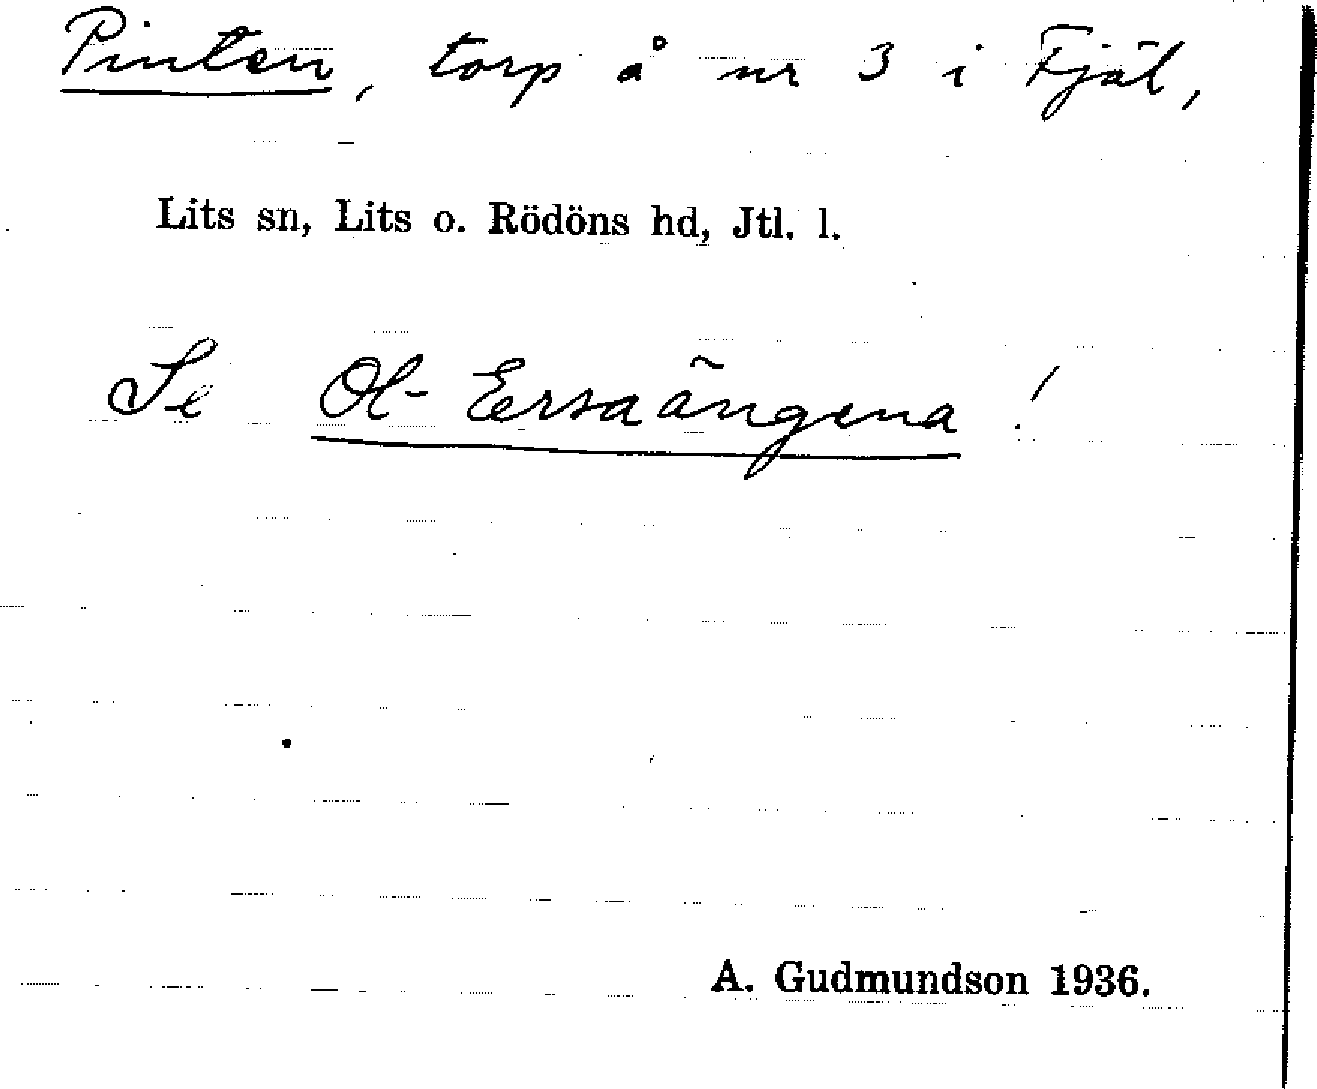 Pinten, torp å nr 3 i Fjäl,
Lits sn, Lits o. Rödöns hd, Jtl. l.
Se Ol-Ersaängena!
A. Gudmundson 1936.